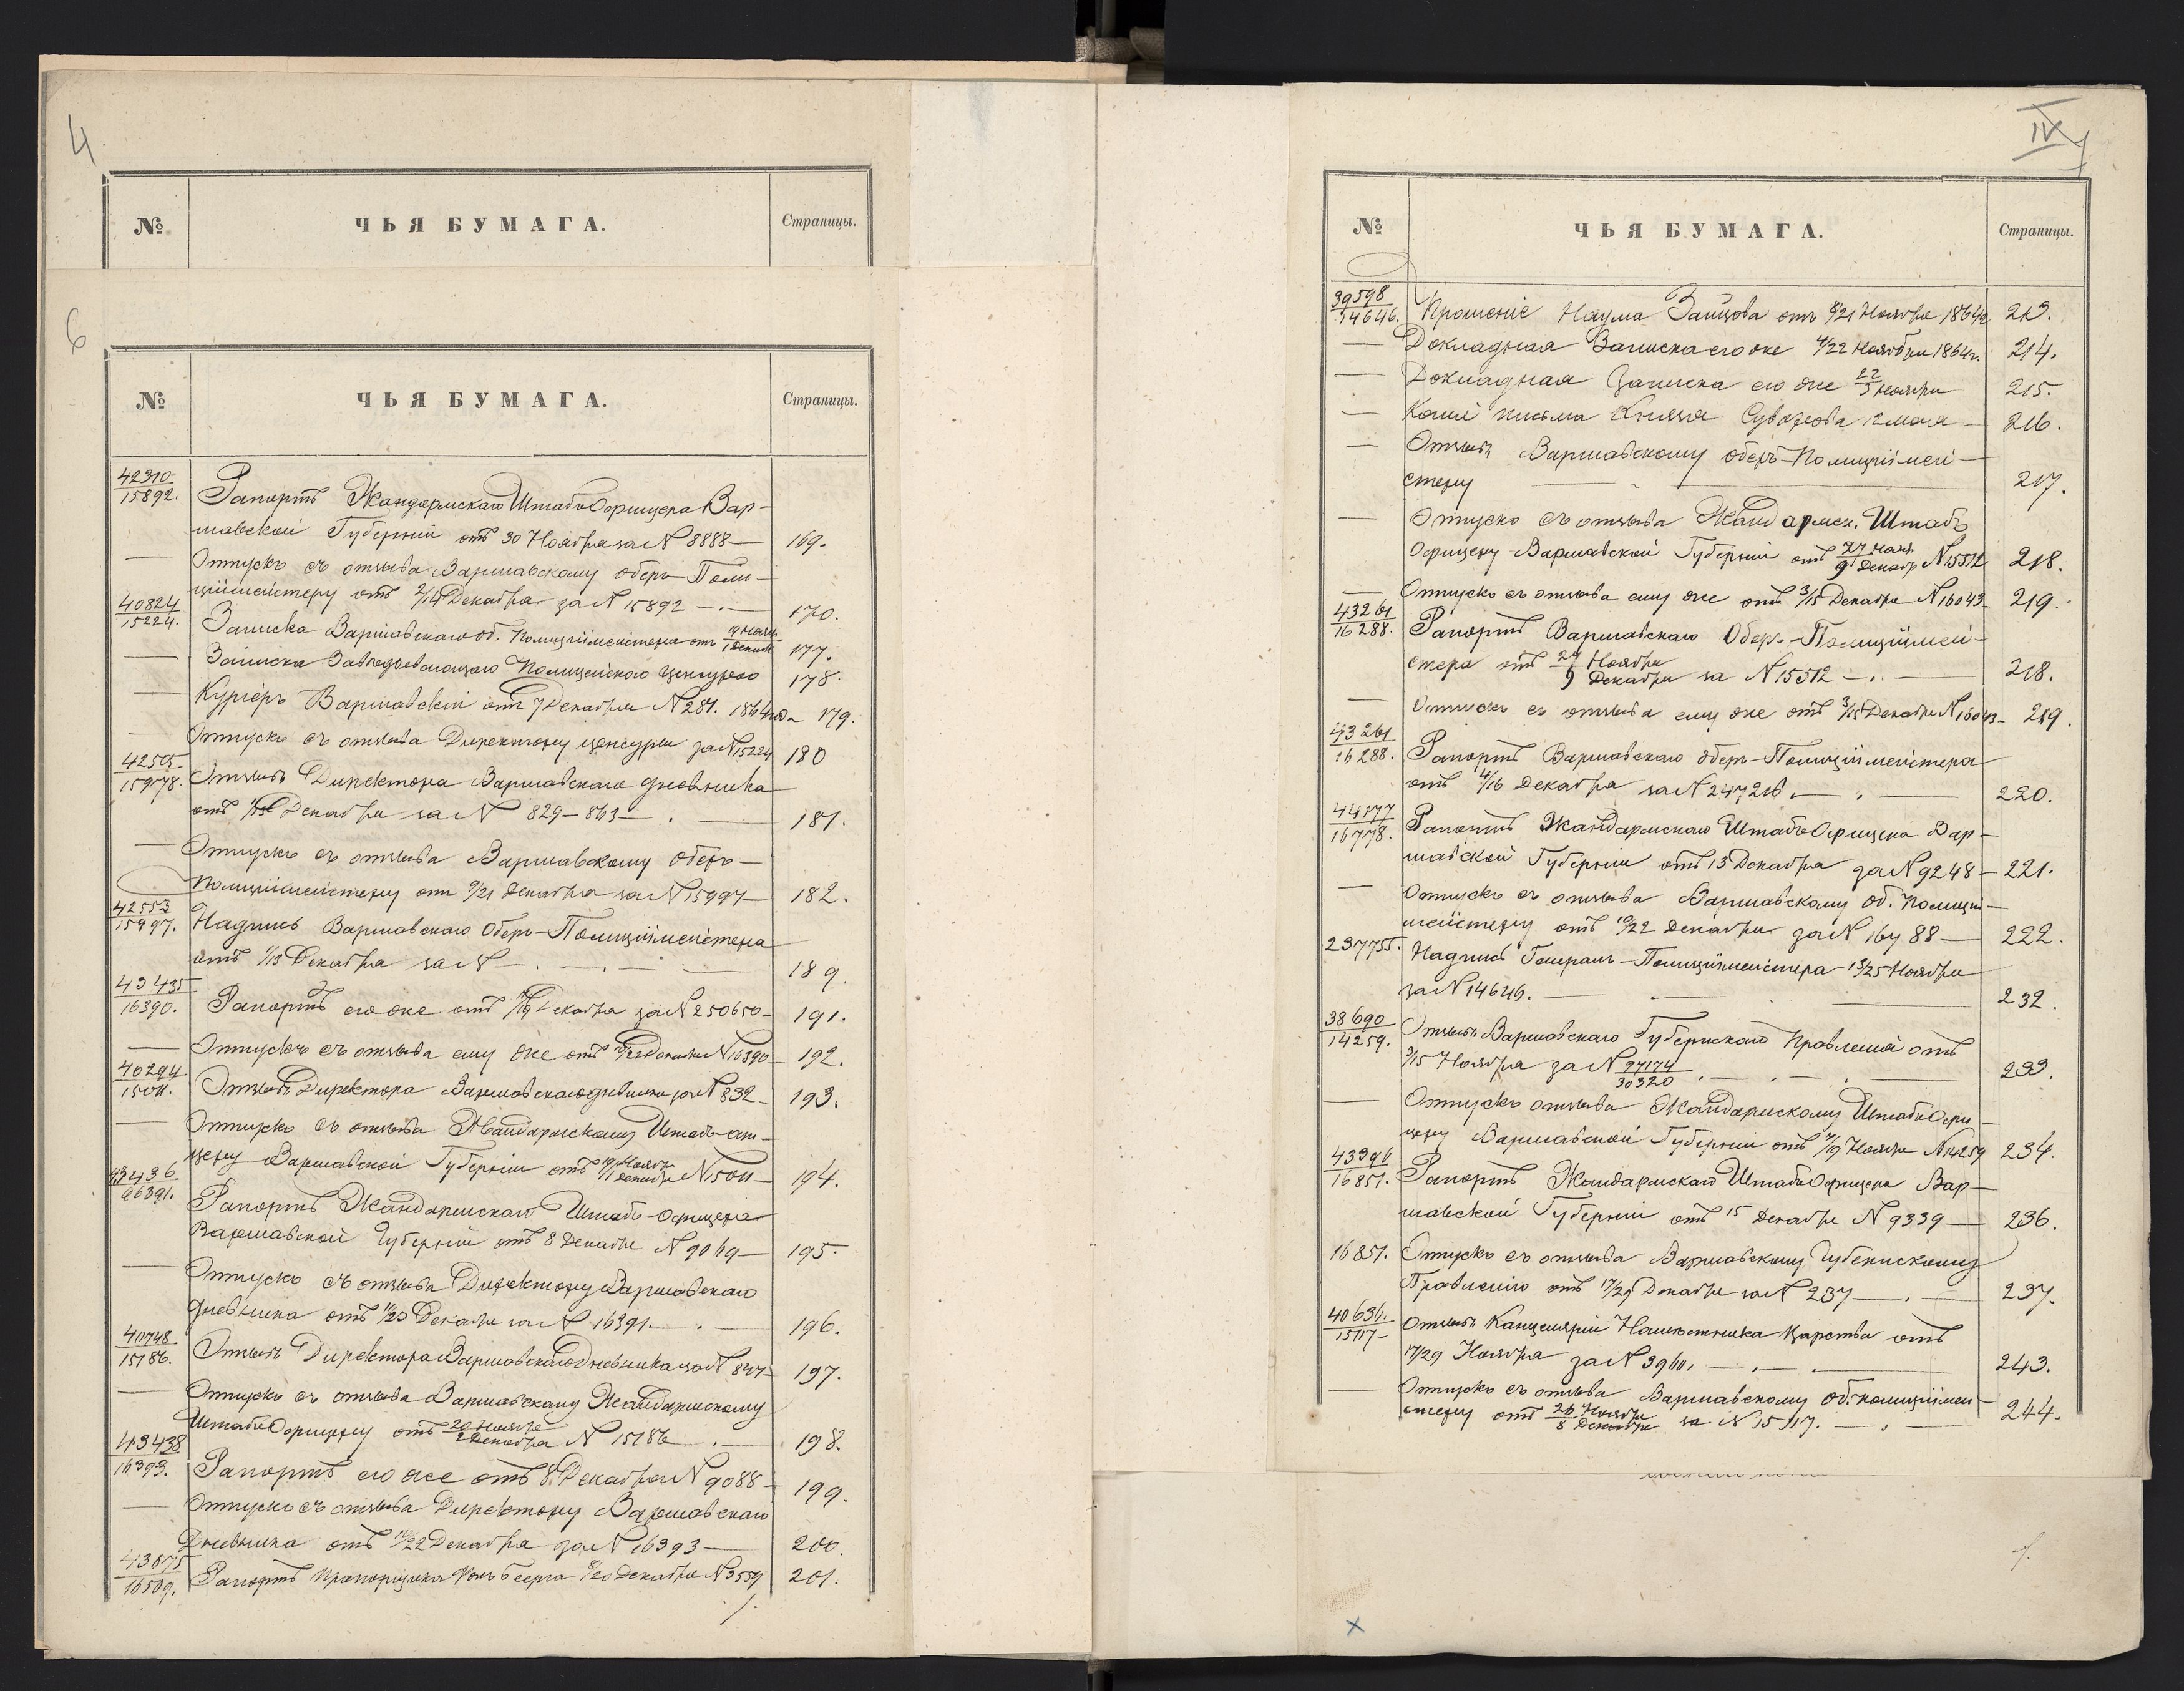 4
№ ЧЬЯ БУМАГА. Страницы.
6
№ ЧЬЯ БУМАГА. Страницы.
42310
15892. Рапортъ Жандармскаго Штабъ Офицера Вар-
шавской Губерніи отъ 30 Ноября за № 8888 — 169.
— Отпускъ съ отзыва Варшавскому оберъ-Поли-
ціймейстеру отъ 2/14 Декабря за № 15892 — 170.
40824
15224. Записка Варшавскаго Об. Полиціймейстера отъ 177.
— Записка Завѣдывающаго Полицейскою Цензурою 178.
— Курьеръ Варшавскій отъ 7 Декабря № 281. 1864 года 179.
— Отпускъ съ отзыва Директору цензуры за № 15224 180
42505
15978. Отзывъ Директора Варшавскаго Дневника
отъ Декабря за № 829-863 — 181.
— Отпускъ съ отзыва Варшавскому оберъ-
Полиціймейстеру отъ 9/21 Декабря за № 15997 — 182.
42553
15997. Надпись Варшавскаго Оберъ-Полиціймейстера
отъ 1/13 Декабря за № — 189.
43435
16390. Рапортъ его же отъ Декабря за № 250650 — 191.
— Отпускъ съ отзыва ему же отъ Декабря № 16390 — 192.
40294
15011. Отзывъ Директора Варшавскаго дневника за № 832 — 193.
— Отпускъ съ отзыва Жандармскому Штабъ-офи-
церу Варшавской Губерніи отъ 19 Ноября / 1 Декабря № 15011 — 194.
43436
16391. Рапортъ Жандармскаго Штабъ-Офицера
Варшавской Губерніи отъ 8 Декабря № 9069 — 195.
— Отпускъ съ отзыва Директору Варшавскаго
дневника отъ 11/23 Декабря за № 16391 — 196.
40748
15186. Отзывъ Директора Варшавскаго Дневника за № 847 — 197.
— Отпускъ съ отзыва Варшавскому Жандармскому
Штабъ Офицеру отъ 20 Ноября / 2 Декабря № 15186 — 198.
43438
16393. Рапортъ его же отъ 8 Декабря № 9088 — 199.
— Отпускъ съ отзыва Директору Варшавскаго
Дневника отъ 10/22 Декабря за № 16393 — 200.
43675
16509. Рапортъ Прапорщика Фонъ 8/20 Декабря № 3559 201.
IV
№ ЧЬЯ БУМАГА. Страницы.
39598
14646. Прошеніе Наума Зайцова отъ 9/21 Ноября 1864 г. 213.
— Докладная Записка его же Ноября 1864 г. 214.
— Докладная Записка его же Ноября 215.
— Копія письма Князя Суворова 12 мая — 216.
— Отзывъ Варшавскому оберъ-Полиціймей-
стеру — 217.
— Отпускъ съ отзыва Жандармск. Штабъ
Офицеру Варшавской Губерніи отъ 27 Нояб / 9 Декабр № 15512 218.
— Отпускъ съ отзыва ему же отъ 3/15 Декабря № 16043 — 219.
43261
16288. Рапортъ Варшавскаго Оберъ-Полиціймей-
стера отъ Ноября / 9 Декабря за № 15512 — 218.
— Отпускъ съ отзыва ему же отъ 3/15 Декабря № 16043 — 219.
43261
16288. Рапортъ Варшавскаго Оберъ-Полиціймейстера
отъ 4/16 Декабря за № 247216 — 220.
44177
16778. Рапортъ Жандармскаго Штабъ Офицера Вар-
шавской Губерніи отъ 13 Декабря за № 9248 — 221.
— Отпускъ съ отзыва Варшавскому об. Полицій-
мейстеру отъ 10/22 Декабря за № 16788 — 222.
237755. Надпись Генералъ-Полиціймейстера 13/25 Ноября
за № 14646. — 232.
38690
14259. Отзывъ Варшавскаго Губернскаго Правленія отъ
3/15 Ноября за № 97174/30320 — 233.
— Отпускъ отзыва Жандармскому Штабъ Офи-
церу Варшавской Губерніи отъ 7/19 Ноября № 14259 234.
43396
16851. Рапортъ Жандармскаго Штабъ Офицера Вар-
шавской Губерніи отъ 15 Декабря № 9339 — 236.
16851. Отпускъ съ отзыва Варшавскому Губернскому
Правленію отъ 17/29 Декабря за № 237 — 237.
40636
15117 — Отзывъ Канцеляріи Намѣстника Царства отъ
17/29 Ноября за № 3960. — 243.
— Отпускъ съ отзыва Варшавскому об. полиціймей-
стеру отъ 26 Ноября / 8 Декабря за № 15117. — 244.